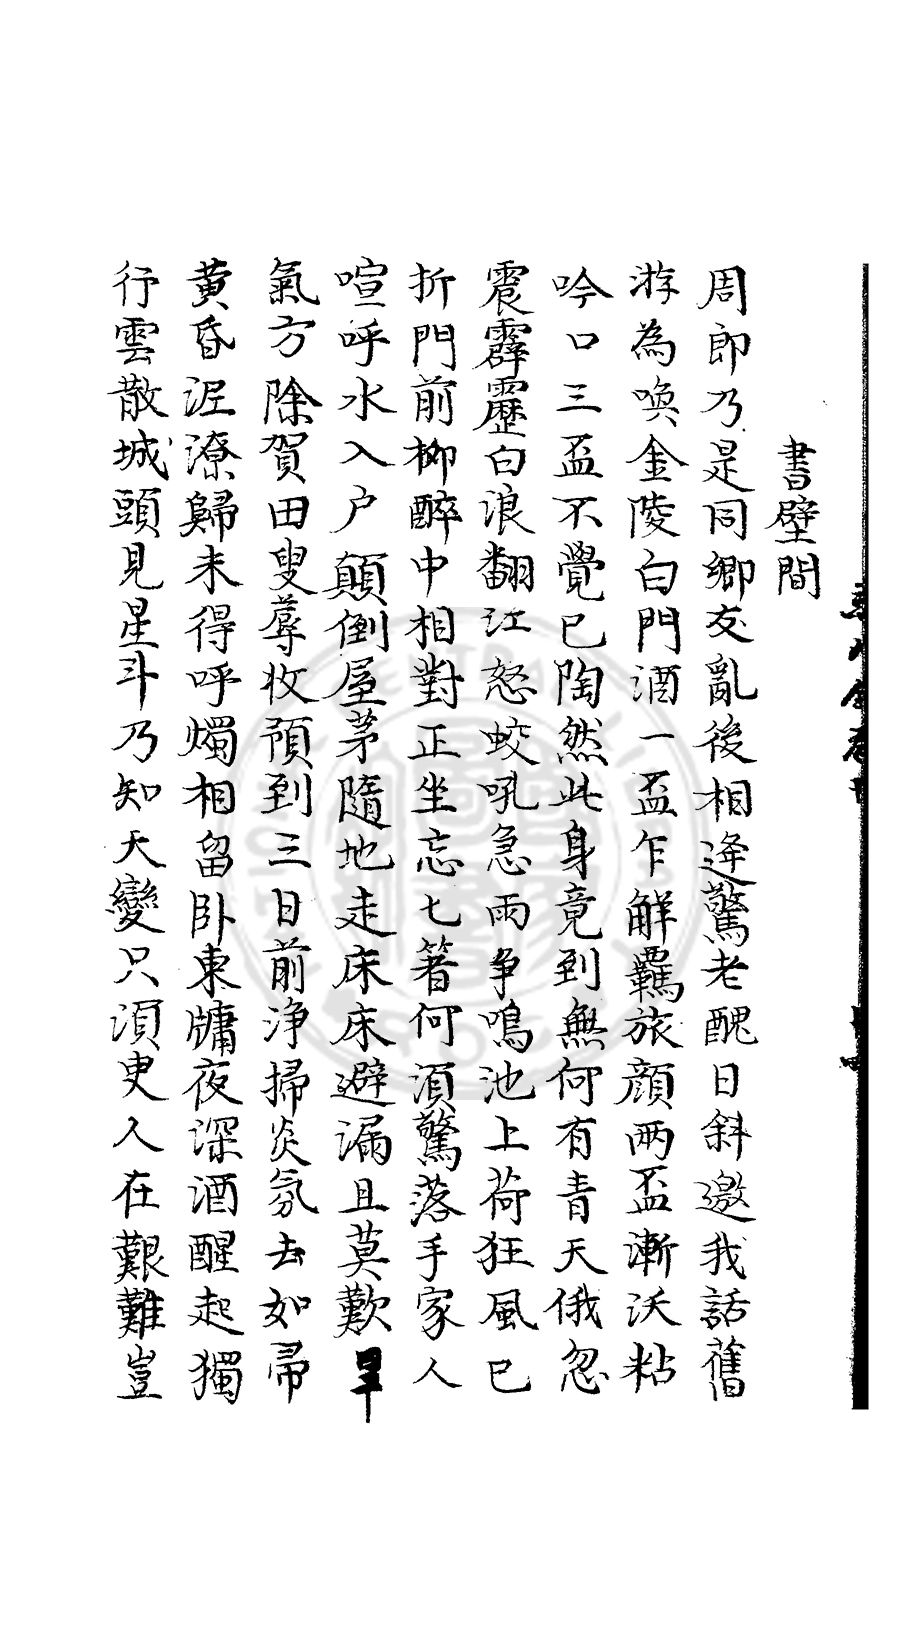 書壁間
周郎乃是同鄉友亂後相逢驚老醜日斜邀我話舊
游為喚金陵白門酒一盃乍解羈旅顏兩盃漸沃粘
吟口三盃不覺已陶然此身竟到無何有青天俄忽
震霹靂白浪翻江怒蛟吼急雨爭鳴池上荷狂風已
折門前柳醉中相對正坐忘七箸何須驚落手家人
喧呼水入户顛倒屋茅隨地走床床避漏且莫歎旱
氣方除賀田叟蓐收預到三日前浄掃炎氛去如帚
黃昏泥潦歸未得呼燭相留卧東牗夜深酒醒起獨
行雲散城頭見星斗乃知天變只須臾人在艱難豈